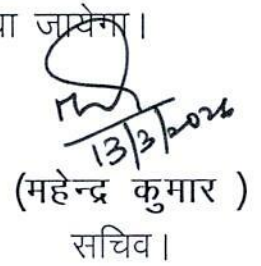 ा जायेगा।
13/3/2026
(महेन्द्र कुमार )
सचिव।